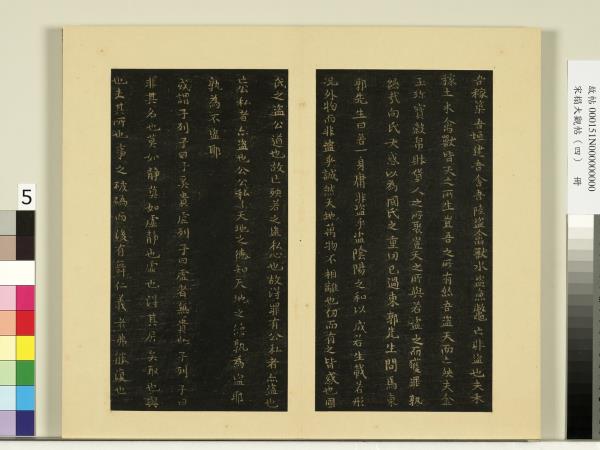 吾稼築吾垣建吾舍吾陸盜禽獸水盜魚鼈亡非盜也夫禾
稼土木禽獸皆天之所生豈吾之所有然吾盜天而亡殃夫金
玉珍寶穀帛財貨人之所聚豈天之所與若盜之而獲罪孰
怨哉向氏大惑以為國氏之重罔己過東郭先生問焉東
郭先生曰若一身庸非盜乎盜陰陽之和以成若生載若形
況外物而非盜乎誠然天地萬物不相離也仞而有之皆惑也國
氏之盜公道也故亡殃若之盜私心也故得罪有公私者亦盜也
亡公私者亦盜也公公私私天地之德知天地之德孰為盜耶
孰為不盜耶
或謂子列子曰子奚貴虛列子曰虛者無貴也子列子曰
非其名也莫如靜莫如虛靜也虛也得其居矣取也與
也失其所也事之破碼而後有舞仁義者弗能復也
故帖 000151N000000000
宋搨大觀帖（四） 冊
5